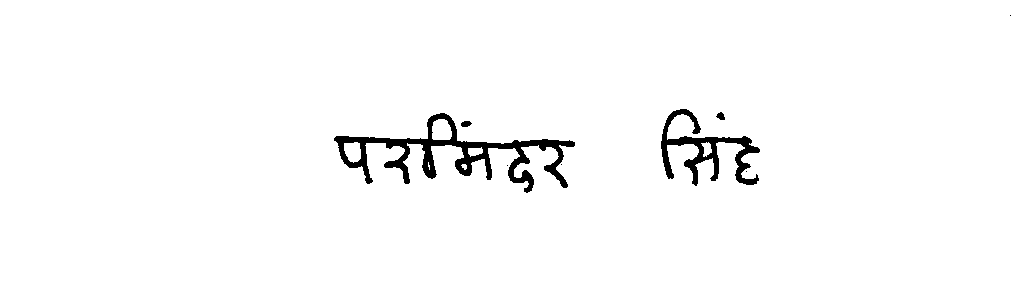 परमिंदर सिंह